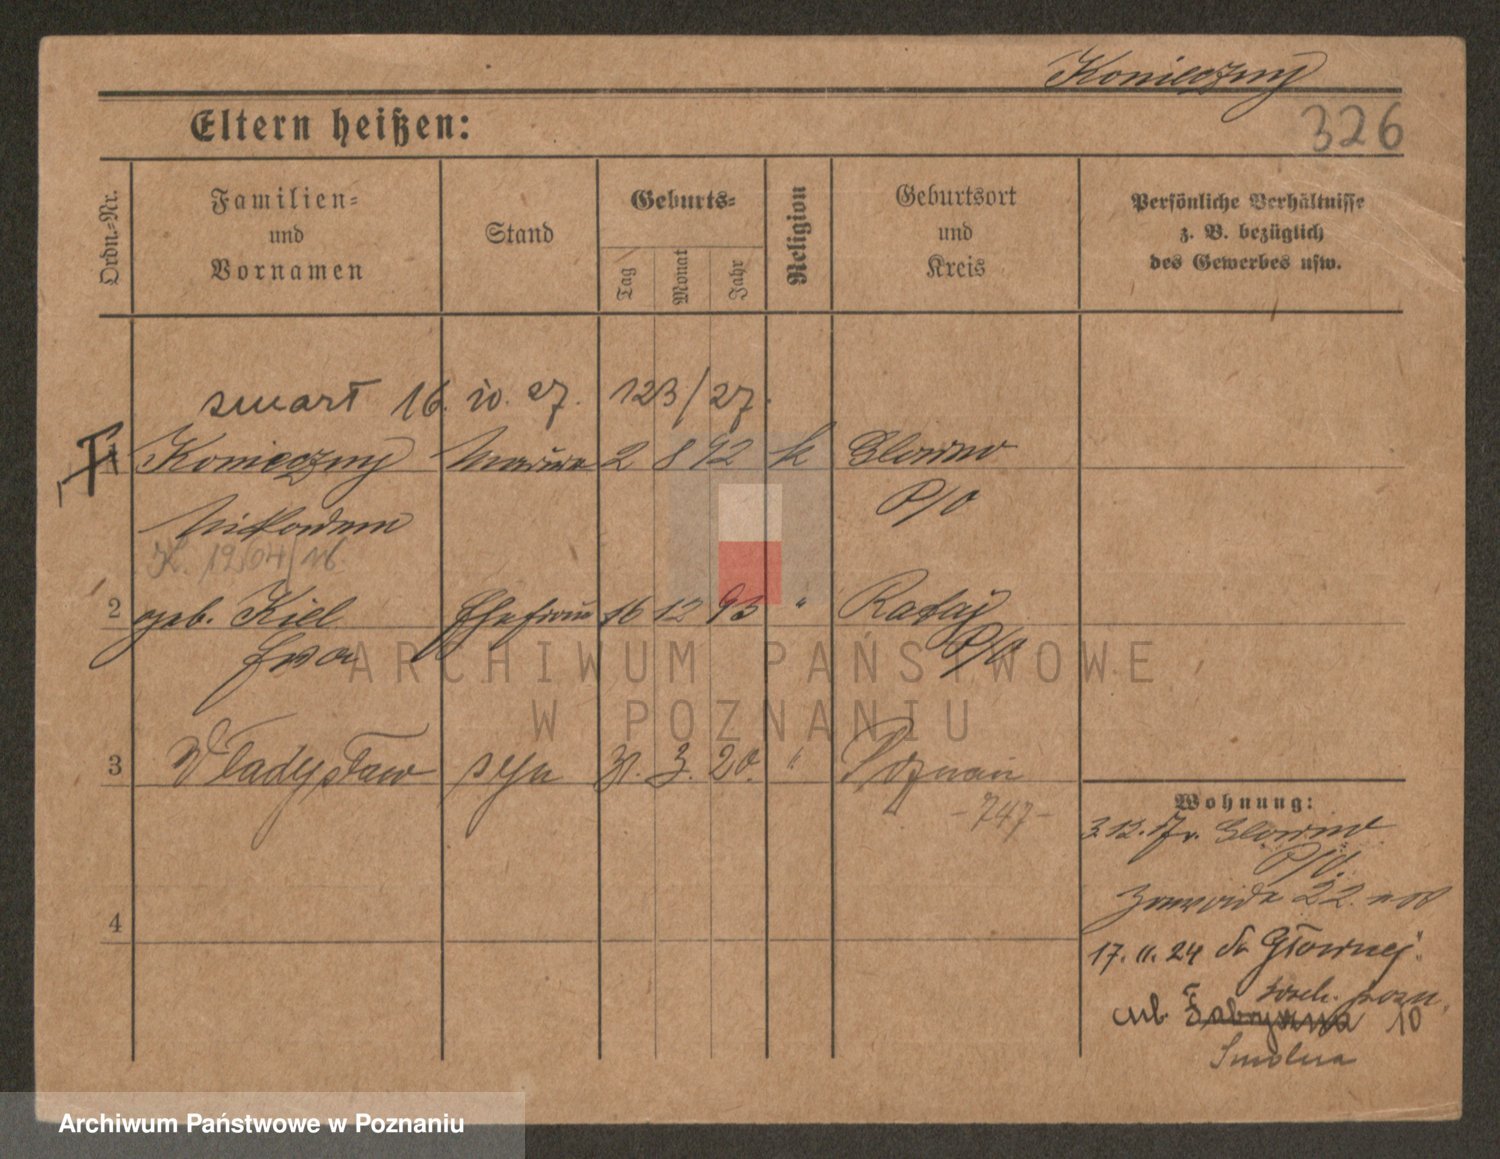 Konieczny
326
Eltern heißen:
Ordn.-Nr.
Familien-
und
Vornamen
Stand
Geburts-
Tag
Monat
Jahr
Religion
Geburtsort
und
Kreis
Persönliche Verhältnisse
z. B. bezüglich
des Gewerbes usw.
zmarł 16. 10. 27. 123/27.
1 Konieczny 2 8 92 k Glowno
P/O
Nikodem
K. 1904/16.
2 geb. Kiel Ehefrau 16 12 93 " Rataj
Ewa P/O
3 Władysław syn 31. 3. 20. " Poznań
-747-
Wohnung:
3.12.17 v. Glowno
P/O.
22.
17.11.24 do Głównej
pozn.
ul. Fabryczna 10
Smolna
4
ARCHIWUM PAŃSTWOWE
W POZNANIU
Archiwum Państwowe w Poznaniu